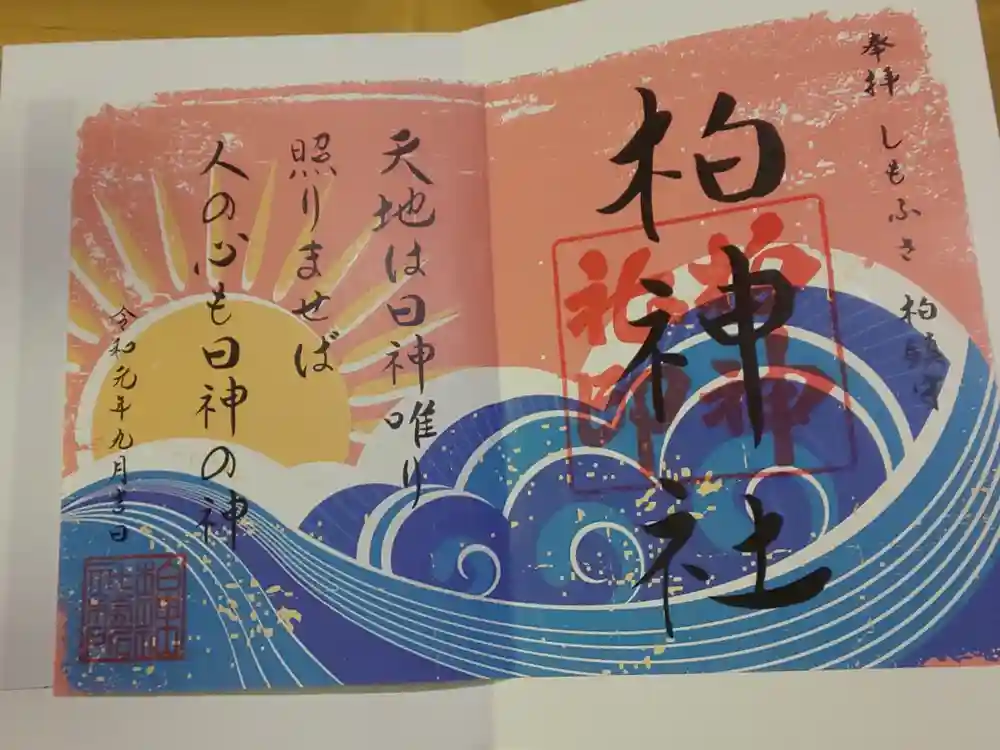 奉拝 しもふさ 柏鎮守
柏神社
柏神社印
天地は日神唯り
照りませば
人の心も日神の神
令和元年九月吉日